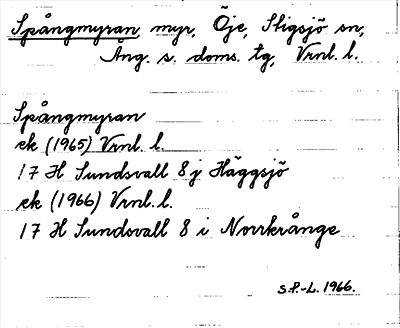 Spångmyran myr, Öje, Stigsjö sn,
Ång. s. doms. tg, Vrnl. l.
Spångmyran
ek (1965) Vrnl. l.
17 H Sundsvall 8 j Häggsjö
ek (1966) Vrnl. l.
17 H Sundsvall 8 i Norrkrånge
S.P.-L. 1966.